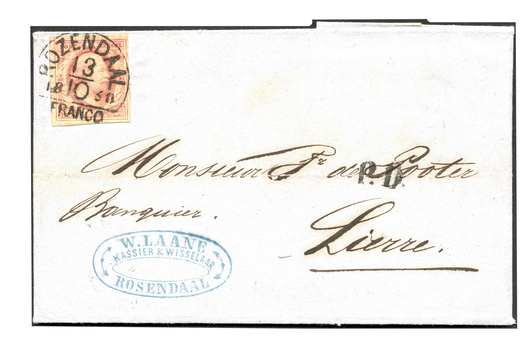 ROZENDAAL
13
10
FRANCO
Monsieur Pr de Pooter
P.D.
Banquier.
Lierre.
W. LAANE
KASSIER & WISSELAAR
ROSENDAAL